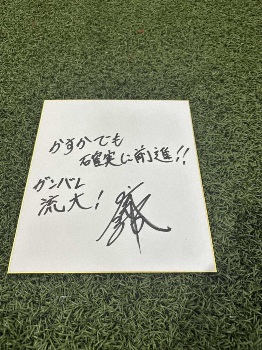 かすかでも
確実に前進!!
ガンバレ
流大!